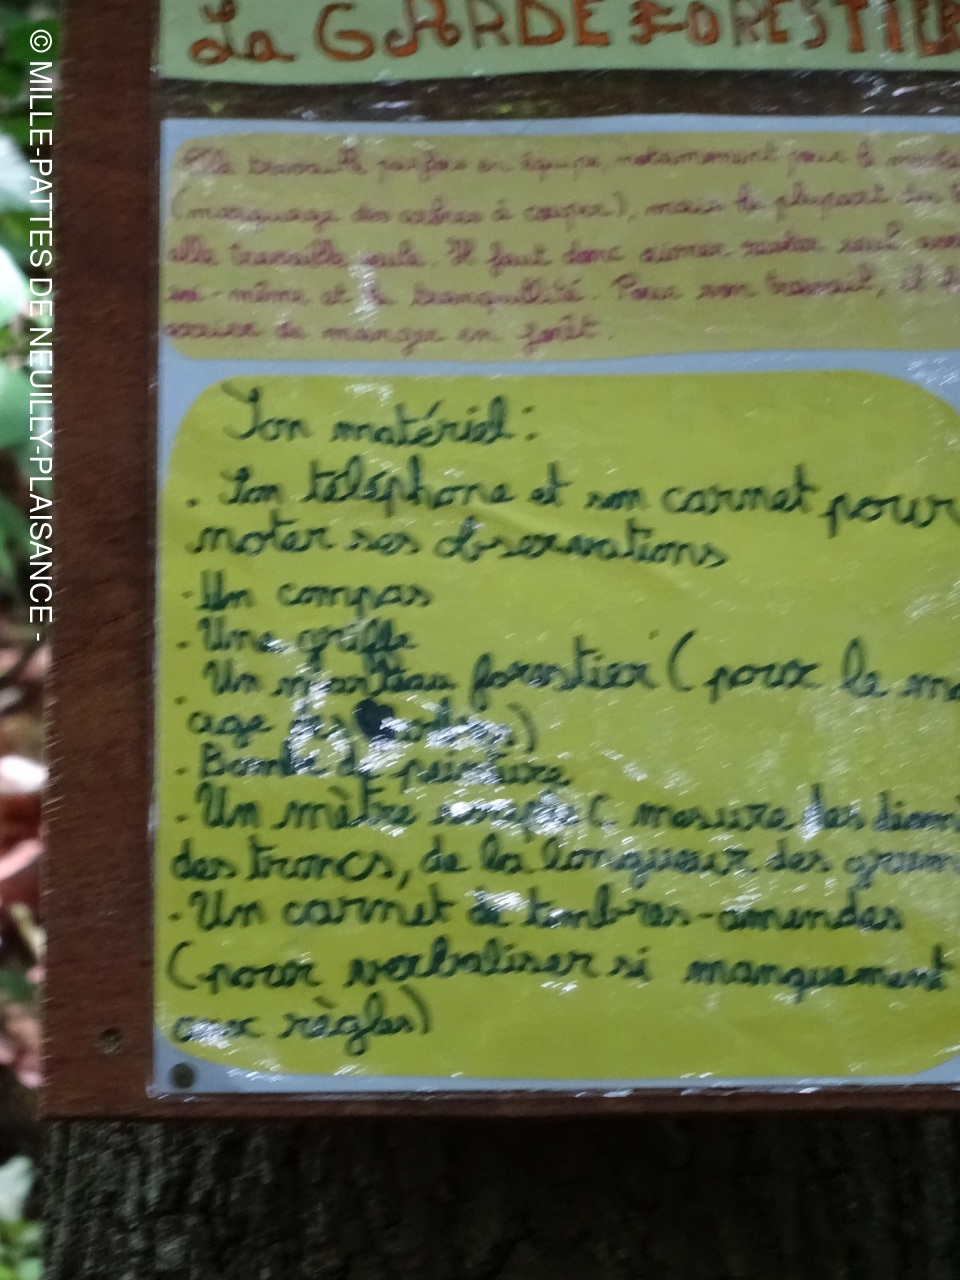 La GARDE FORESTIER
Elle travaille parfois en équipe, notamment pour le
(marquage des arbres à couper), mais la plupart du
elle travaille seule. Il faut donc aimer rester seul avec
soi-même et la tranquillité. Pour son travail, il
de manger en forêt.
Son matériel :
. Son téléphone et son carnet pour
noter ses observations
- Un compas
. Une griffe
. Un marteau forestier (pour le
age des)
- Bombe de peinture
. Un mètre souple ( mesure des
des troncs, de la longueur des
. Un carnet de timbres-amendes
(pour verbaliser si manquement
aux règles)
© MILLE-PATTES DE NEUILLY-PLAISANCE -